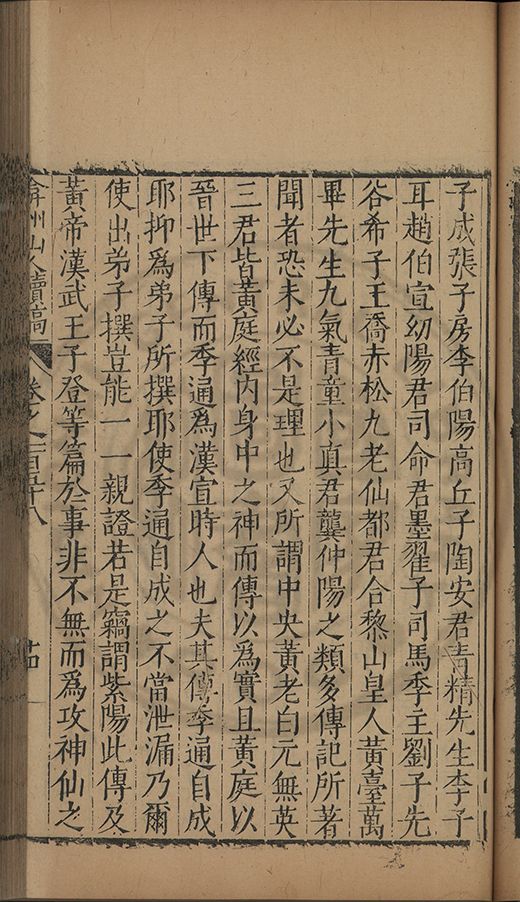 子成張子房李伯陽高丘子陶安君青精先生李子
耳趙伯宣㓜陽君司命君墨翟子司馬季主劉子先
谷希子王喬赤松九老仙都君合黎山皇人黃臺萬
畢先生九氣青童小真君龔仲陽之類多傳記所著
聞者恐未必不是理也又所謂中央黃老白元無英
三君皆黃庭經內身中之神而傳以為實且黃庭以
晉世下傳而季通為漢宣時人也夫其傳季通自成
耶抑為弟子所撰耶使季通自成之不當泄漏乃爾
使出弟子撰豈能一一親證若是竊謂紫陽此傳及
黃帝漢武王子登等篇於事非不無而為攻神仙之
弇州山人續稿 卷之一百五十八